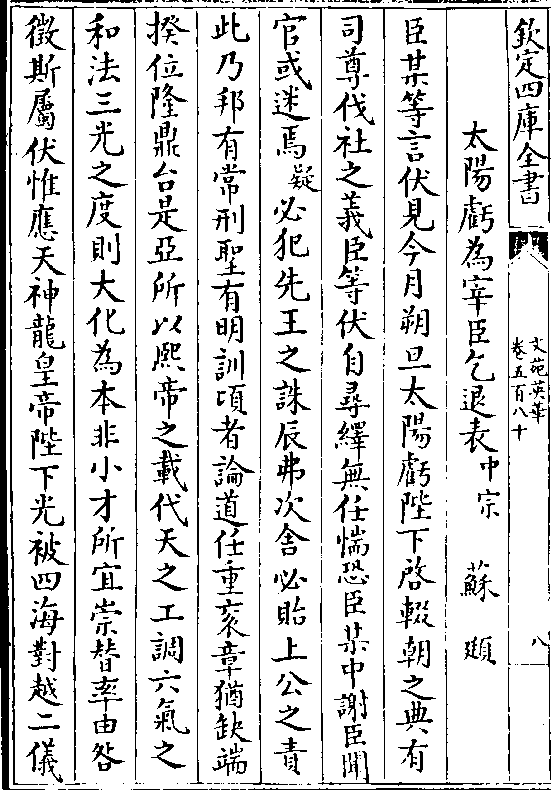 欽定四庫全書
文苑英華
卷五百八十
八
太陽虧為宰臣乞退表中宗 蘇頲
臣某等言伏見今月朔旦太陽虧陛下啓輟朝之典有
司尊伐社之義臣等伏自尋繹無任惴恐臣某中謝臣聞
官或迷焉疑必犯先王之誅辰弗次舍必貽上公之責
此乃邦有常刑聖有明訓頃者論道任重袞章猶缺端
揆位隆鼎台是亞所以熙帝之載代天之工調六氣之
和法三光之度則大化為本非小才所宜崇替率由咎
徵斯屬伏惟應天神龍皇帝陛下光被四海對越二儀